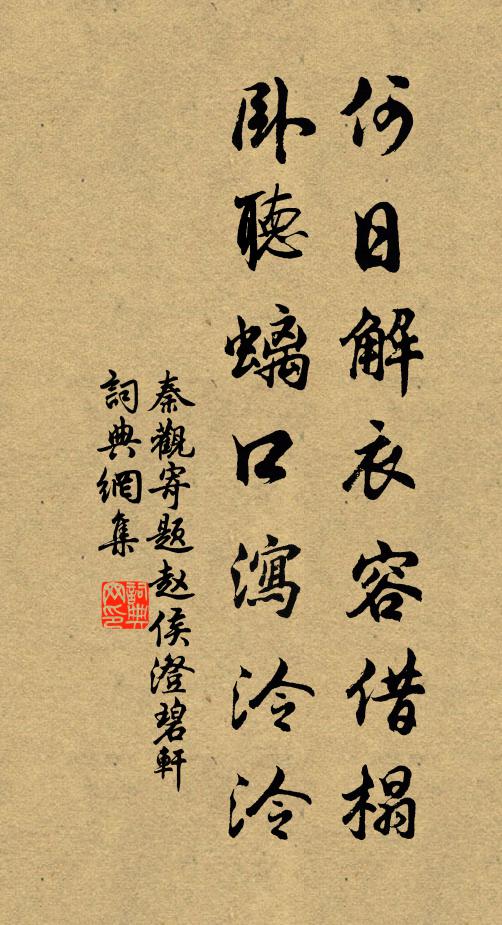 何日解衣容借榻
臥聽螭口瀉泠泠
秦觀寄題赵侯澄碧軒
詞典網集
詞典網印